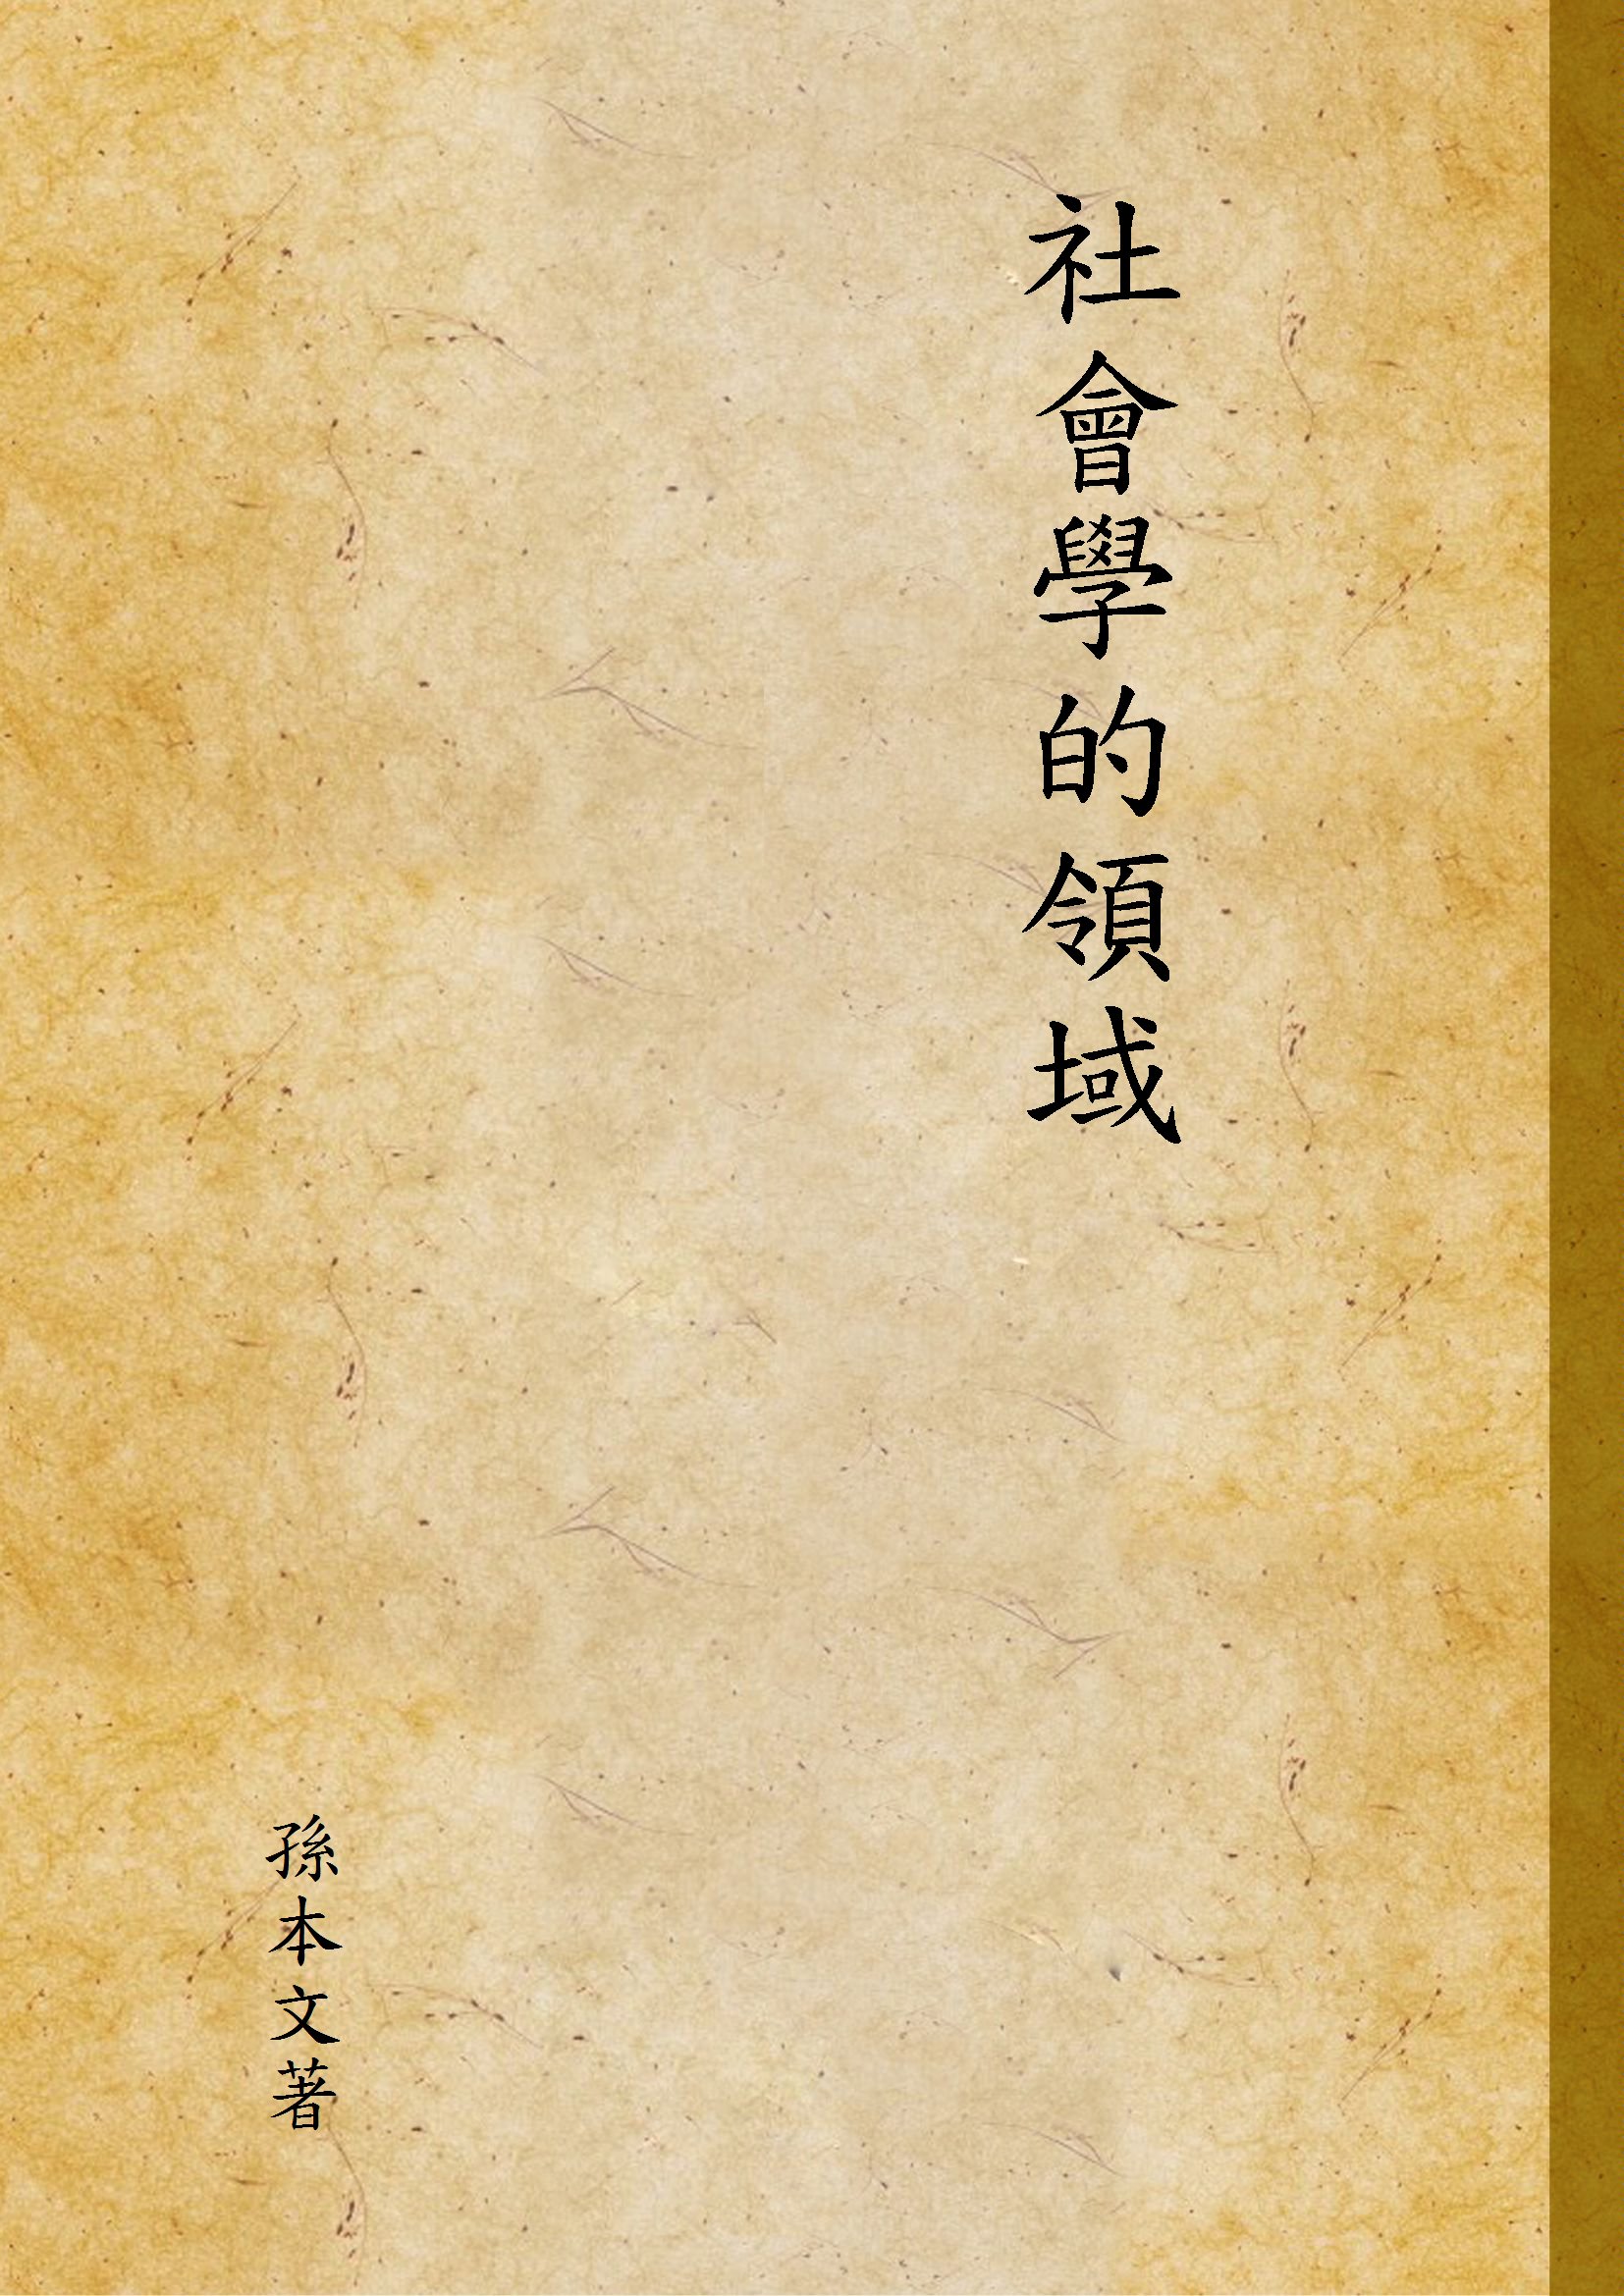 社會學的領域
孫本文著